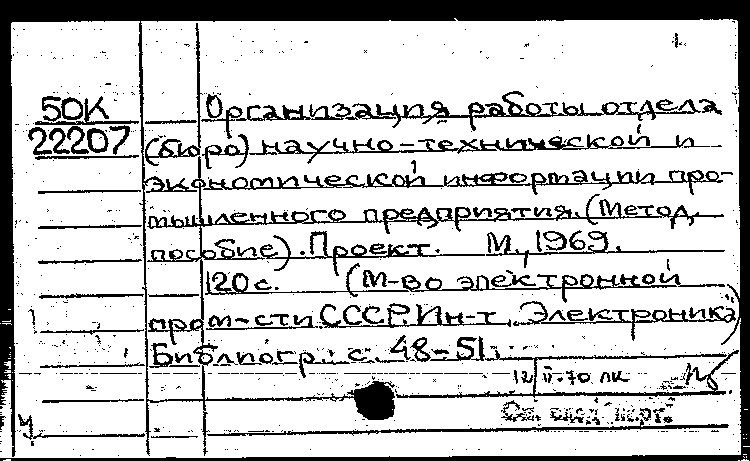 1.
50К Организация работы отдела
22207 (бюро) научно-технической и
экономической информации про-
мышленного предприятия. (Метод,
пособие). Проект. М., 1969.
120 с. (М-во электронной
пром-сти СССР. Ин-т "Электроника")
Библиогр.: с. 48-51.
12/II-70 ЛК